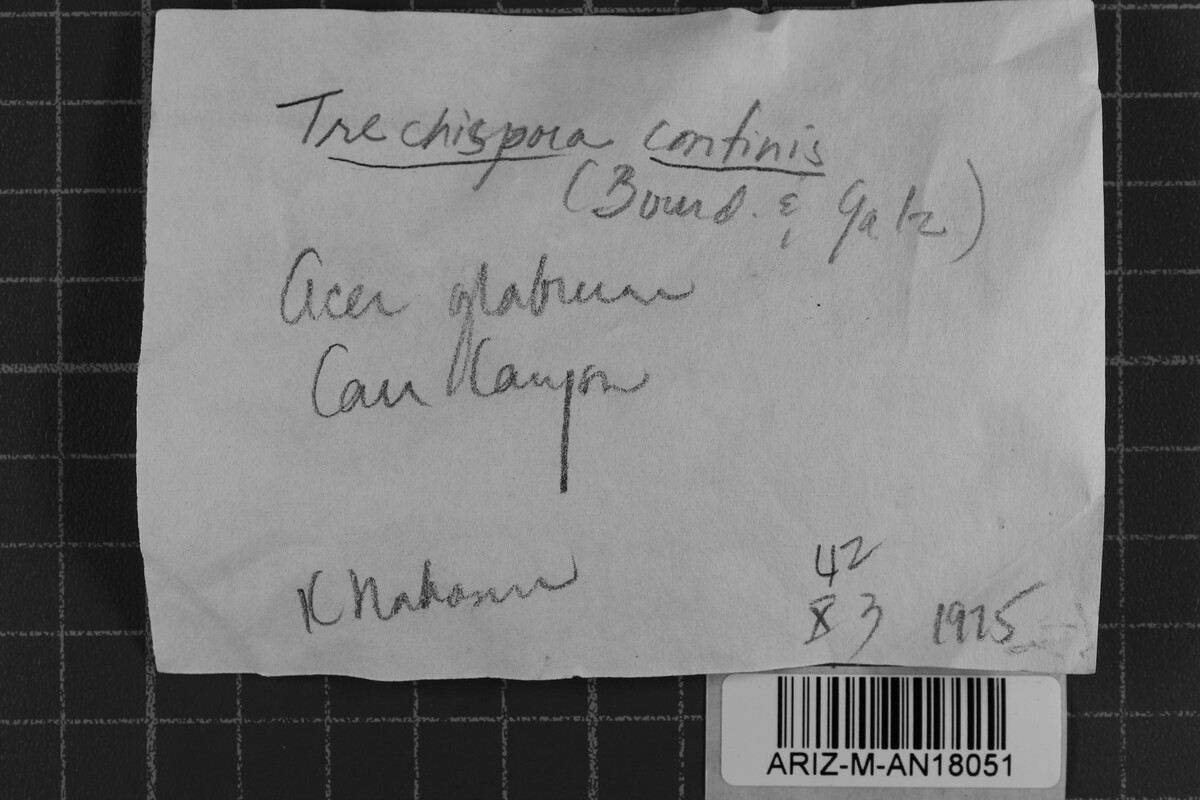 Trechispora confinis
(Bourd. & Galz)
Acer glabrum
Carr Canyon
K Nakasone
42
X 3 1975
ARIZ-M-AN18051